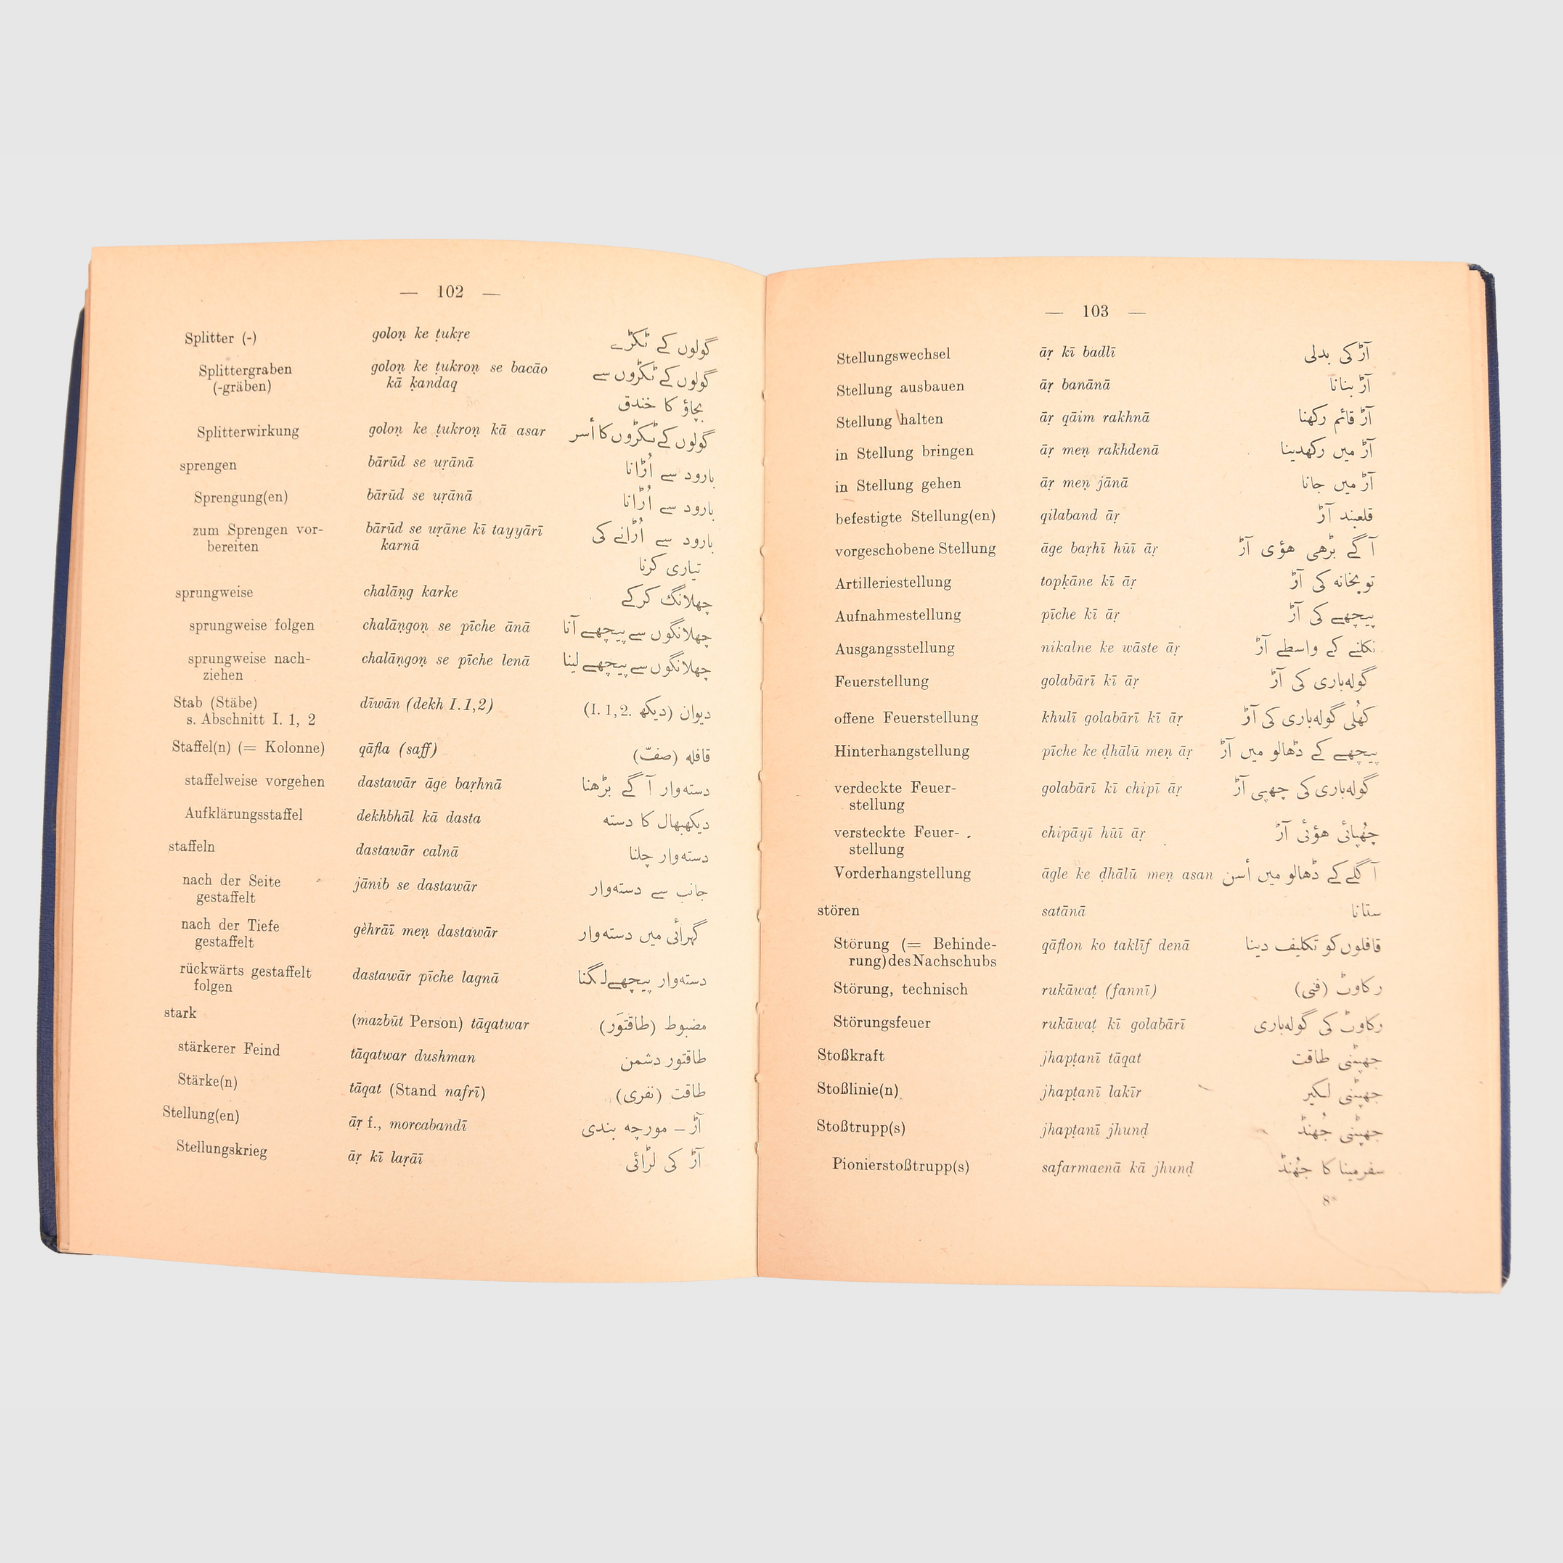 — 102 —
Splitter (-) goloṇ ke ṭukṛe گولوں کے ٹکڑے
Splittergraben golon ke ṭukron se bacāo گولوں کے ٹکڑوں سے
(-gräben) kā ḳandaq
بچاؤ کا خندق
Splitterwirkung goloṇ ke ṭukron kā asar گولوں کے ٹکڑوں کا أسر
sprengen bārūd se uṛānā بارود سے اُڑانا
Sprengung(en) bārūd se uṛānā بارود سے اُڑانا
zum Sprengen vor- bārūd se uṛāne kī tayyārī بارود سے اُڑانے کی
bereiten karnā
تیاری کرنا
sprungweise chalāng karke چھلانگ کرکے
sprungweise folgen chalāṇgoṇ se pīche ānā چھلانگوں سے پیچھے آنا
sprungweise nach- chalāṇgoṇ se pīche lenā چھلانگوں سے پیچھے لینا
ziehen
Stab (Stäbe) dīwān (dekh I.1,2) دیوان (دیکھ .I.1,2)
s. Abschnitt I. 1, 2
Staffel(n) (= Kolonne) qāfla (saff) قافلہ (صفّ)
staffelweise vorgehen dastawār āge baṛhnā دستہوار آگے بڑھنا
Aufklärungsstaffel dekhbhāl kā dasta دیکھبھال کا دستہ
staffeln dastawār calnā دستہوار چلنا
nach der Seite jānib se dastawār جانب سے دستہوار
gestaffelt
nach der Tiefe gèhrāī meṇ dastawār گہرائی میں دستہوار
gestaffelt
rückwärts gestaffelt dastawār pīche lagnā دستہوار پیچھے لگنا
folgen
stark (mazbūt Person) tāqatwar مضبوط (طاقتوَر)
stärkerer Feind tāqatwar dushman طاقتور دشمن
Stärke(n) tāqat (Stand nafrī) طاقت (نفری)
Stellung(en) āṛ f., morcabandī آڑ – مورچہ بندی
Stellungskrieg āṛ kī laṛāī آڑ کی لڑائی
— 103 —
Stellungswechsel āṛ kī badlī آڑ کی بدلی
Stellung ausbauen āṛ banānā آڑ بنانا
Stellung halten āṛ qāim rakhnā آڑ قائم رکھنا
in Stellung bringen āṛ meṇ rakhdenā آڑ میں رکھدینا
in Stellung gehen āṛ meṇ jānā آڑ میں جانا
befestigte Stellung(en) qilaband āṛ قلعبند آڑ
vorgeschobene Stellung āge baṛhī hūī āṛ آگے بڑھی ھؤی آڑ
Artilleriestellung topḳāne kī āṛ توپخانہ کی آڑ
Aufnahmestellung pīche kī āṛ پیچھے کی آڑ
Ausgangsstellung nikalne ke wāste āṛ نکلنے کے واسطے آڑ
Feuerstellung golabārī kī āṛ گولہباری کی آڑ
offene Feuerstellung khulī golabārī kī āṛ کھُلی گولہباری کی آڑ
Hinterhangstellung pīche ke ḍhālū meṇ āṛ پیچھے کے ڈھالو میں آڑ
verdeckte Feuer- golabārī kī chipī āṛ گولہباری کی چھپی آڑ
stellung
versteckte Feuer- chipāyī hūī āṛ چھُپائی ھؤئی آڑ
stellung
Vorderhangstellung āgle ke ḍhālū meṇ asan آگلے کے ڈھالو میں أسن
stören satānā ستانا
Störung (= Behinde- qāflon ko taklīf denā قافلوں کو تکلیف دینا
rung) des Nachschubs
Störung, technisch rukāwaṭ (fannī) رکاوٹ (فنی)
Störungsfeuer rukāwaṭ kī golabārī رکاوٹ کی گولہباری
Stoßkraft jhapṭanī tāqat جھپٹنی طاقت
Stoßlinie(n) jhapṭanī lakīr جھپٹنی لکیر
Stoßtrupp(s) jhapṭanī jhunḍ جھپٹنی جُھنڈ
Pionierstoßtrupp(s) safarmaenā kā jhunḍ سفرمینا کا جھُنڈ
8*